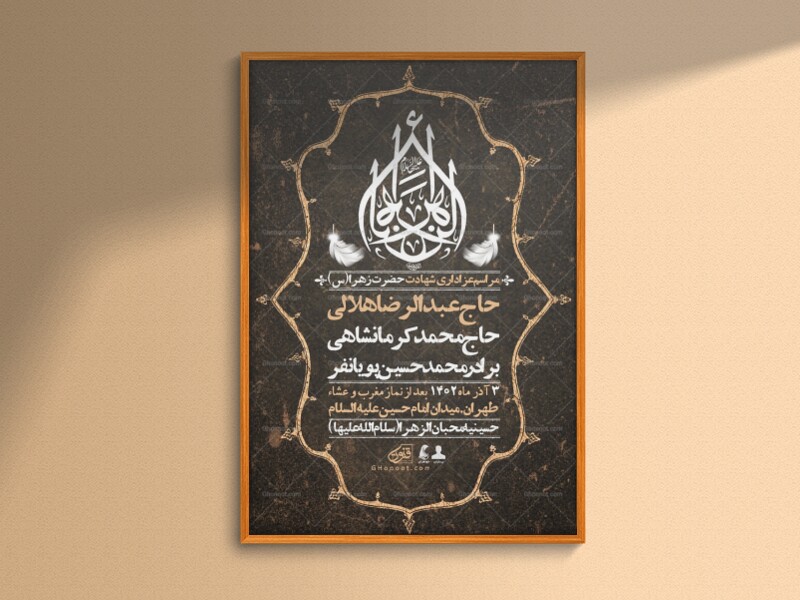 مراسم عزاداری شهادت حضرت زهرا(س)
حاج عبدالرضا هلالی
حاج محمد کرمانشاهی
برادر محمد حسین پویانفر
۳ آذر ماه ۱۴۰۲ بعد از نماز مغرب و عشاء
طهران، میدان امام حسین علیه السلام
حسینیه محبان الزهرا (سلام الله علیها)
GHopoot.com